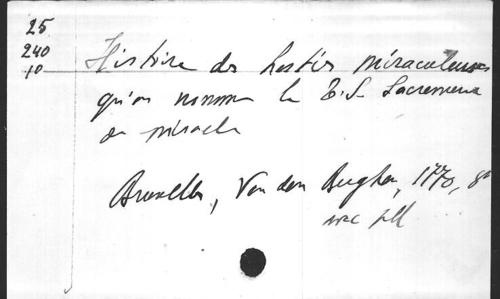 25
240
10
Histoire des hosties miraculeuses
qu'on nomme le T.S. Sacrement
de miracle
Bruxelles, Van den Berghen, 1770, 8°